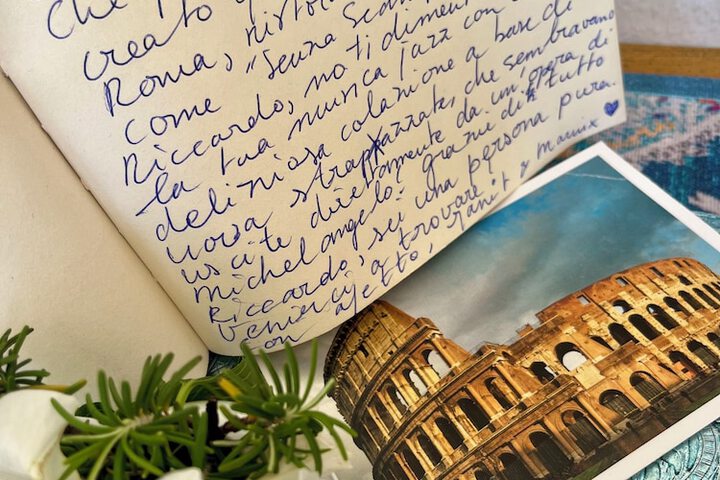 che
creato
Roma,
come "Senza
Riccardo, no ti
la tua musica jazz con
deliziosa colazione a base di
uova strappazzate, che sembravano
uscite direttamente da un'opera di
Michelangelo. Grazie di tutto
Riccardo, sei una persona pura.
Venirci a trovare,
con afetto, &